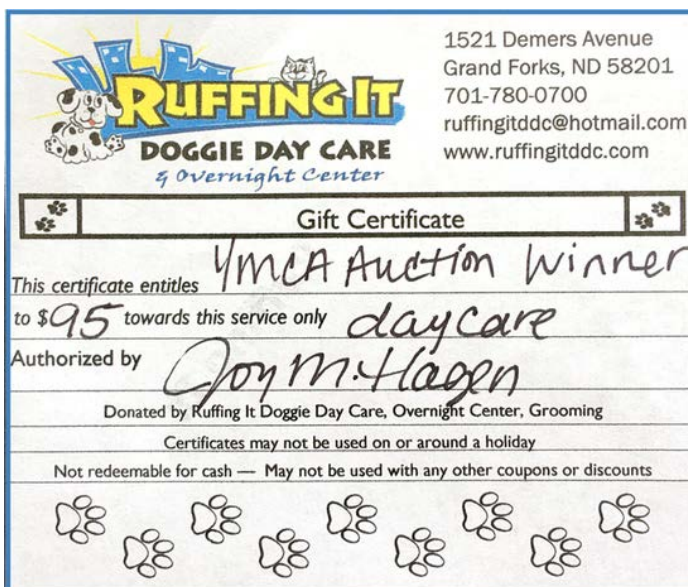 RUFFING IT
DOGGIE DAY CARE
& Overnight Center
1521 Demers Avenue
Grand Forks, ND 58201
701-780-0700
ruffingitddc@hotmail.com
www.ruffingitddc.com
Gift Certificate
This certificate entitles YMCA Auction Winner
to $95 towards this service only daycare
Authorized by Joy M. Hagen
Donated by Ruffing It Doggie Day Care, Overnight Center, Grooming
Certificates may not be used on or around a holiday
Not redeemable for cash — May not be used with any other coupons or discounts